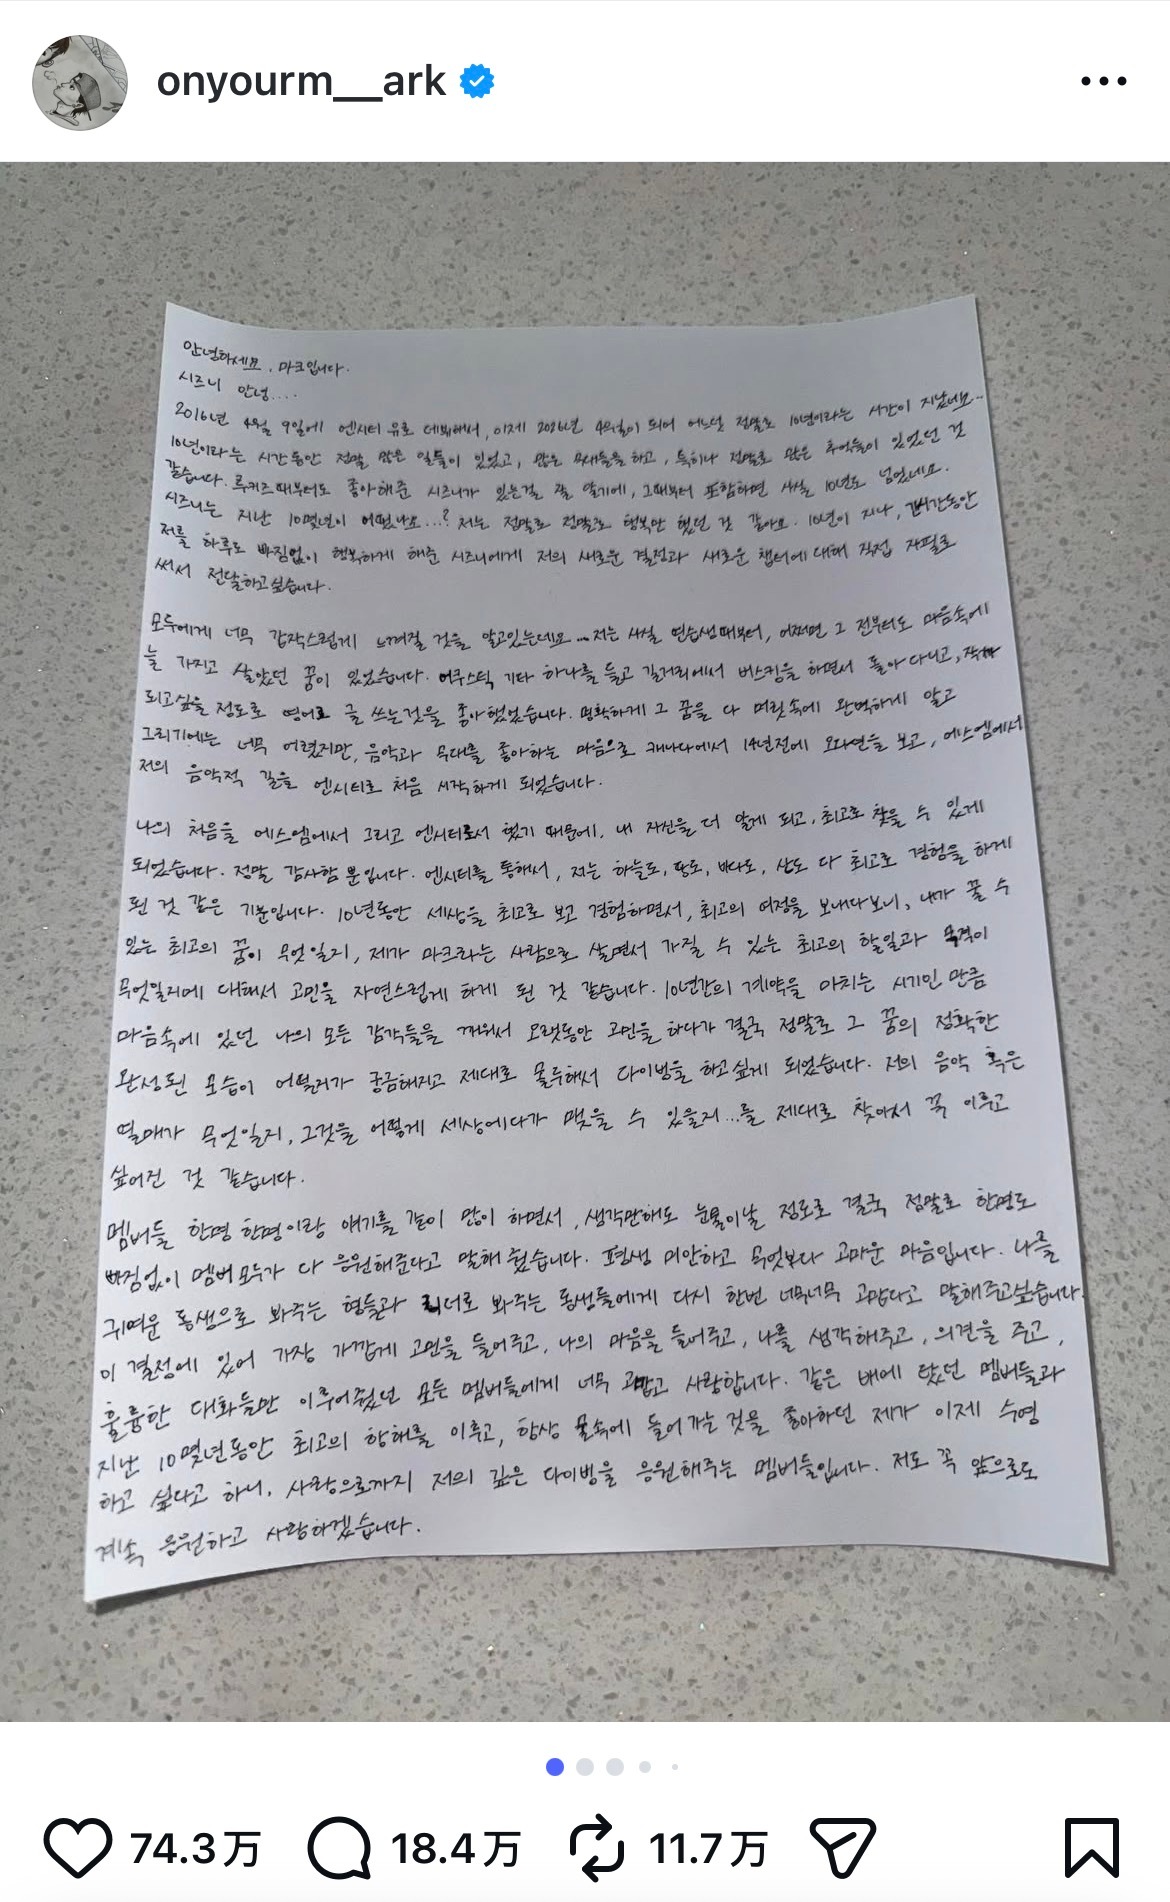 onyourm__ark
안녕하세요, 마크입니다.
시즈니 안녕....
2016년 4월 9일에 엔시티 유로 데뷔해서, 이제 2026년 4월이 되어 어느덧 정말로 10년이라는 시간이 지났네요..
10년이라는 시간동안 정말 많은 일들이 있었고, 많은 무대들을 하고, 특히나 정말로 많은 추억들이 있었던 것
같습니다. 루키즈때부터도 좋아해준 시즈니가 있는걸 잘 알기에, 그때부터 포함하면 사실 10년도 넘었네요.
시즈니는 지난 10몇년이 어떤나요...? 저는 정말로 정말로 행복만 했던 것 같아요. 10년이 지나, 그 시간동안
저를 하루도 빠짐없이 행복하게 해준 시즈니에게 저의 새로운 결정과 새로운 챕터에 대해 직접 자필로
써서 전달하고싶습니다.
모두에게 너무 갑작스럽게 느껴질 것을 알고있는데요... 저는 사실 연습생때부터, 어쩌면 그 전부터도 마음속에
늘 가지고 살았던 꿈이 있었습니다. 어쿠스틱 기타 하나를 들고 길거리에서 버스킹을 하면서 돌아다니고, 작가
되고싶을 정도로 영어로 글 쓰는것을 좋아했었습니다. 명확하게 그 꿈을 다 머릿속에 완벽하게 알고
그리기에는 너무 어렸지만, 음악과 무대를 좋아하는 마음으로 캐나다에서 14년전에 오디션을 보고, 에스엠에서
저의 음악적 길을 엔시티로 처음 시작하게 되었습니다.
나의 처음을 에스엠에서 그리고 엔시티로서 했기 때문에, 내 자신을 더 알게 되고, 최고로 찾을 수 있게
되었습니다. 정말 감사함 뿐입니다. 엔시티를 통해서, 저는 하늘도, 땅도, 바다도, 산도 다 최고로 경험을 하게
된 것 같은 기분입니다. 10년동안 세상을 최고로 보고 경험하면서, 최고의 여정을 보내다보니, 내가 꿀 수
있는 최고의 꿈이 무엇일지, 제가 마크라는 사람으로 살면서 가질 수 있는 최고의 할일과 목적이
무엇일지에 대해서 고민을 자연스럽게 하게 된 것 같습니다. 10년간의 계약을 마치는 시기인 만큼
마음속에 있던 나의 모든 감각들을 깨워서 오랫동안 고민을 하다가 결국 정말로 그 꿈의 정확한
완성된 모습이 어떨런가 궁금해지고 제대로 몰두해서 다이빙을 하고싶게 되었습니다. 저의 음악 혹은
열매가 무엇일지, 그것을 어떻게 세상에다가 맺을 수 있을지...를 제대로 찾아서 꼭 이루고
싶어진 것 같습니다.
멤버들 한명 한명이랑 얘기를 같이 많이 하면서, 생각만해도 눈물이날 정도로 결국 정말로 한명도
빠짐없이 멤버 모두가 다 응원해준다고 말해 줬습니다. 평생 미안하고 무엇보다 고마운 마음입니다. 나를
귀여운 동생으로 봐주는 형들과 리더로 봐주는 동생들에게 다시 한번 너무너무 고맙다고 말해주고싶습니다.
이 결정에 있어 가장 가깝게 고민을 들어주고, 나의 마음을 들어주고, 나를 생각해주고, 의견을 주고,
훌륭한 대화들만 이루어줬던 모든 멤버들에게 너무 고맙고 사랑합니다. 같은 배에 탔던 멤버들과
지난 10몇년동안 최고의 항해를 이루고, 항상 물속에 들어가는 것을 좋아하던 제가 이제 수영
하고 싶다고 하니, 사랑으로까지 저의 깊은 다이빙을 응원해주는 멤버들입니다. 저도 꼭 앞으로도
계속 응원하고 사랑하겠습니다.
74.3万 18.4万 11.7万